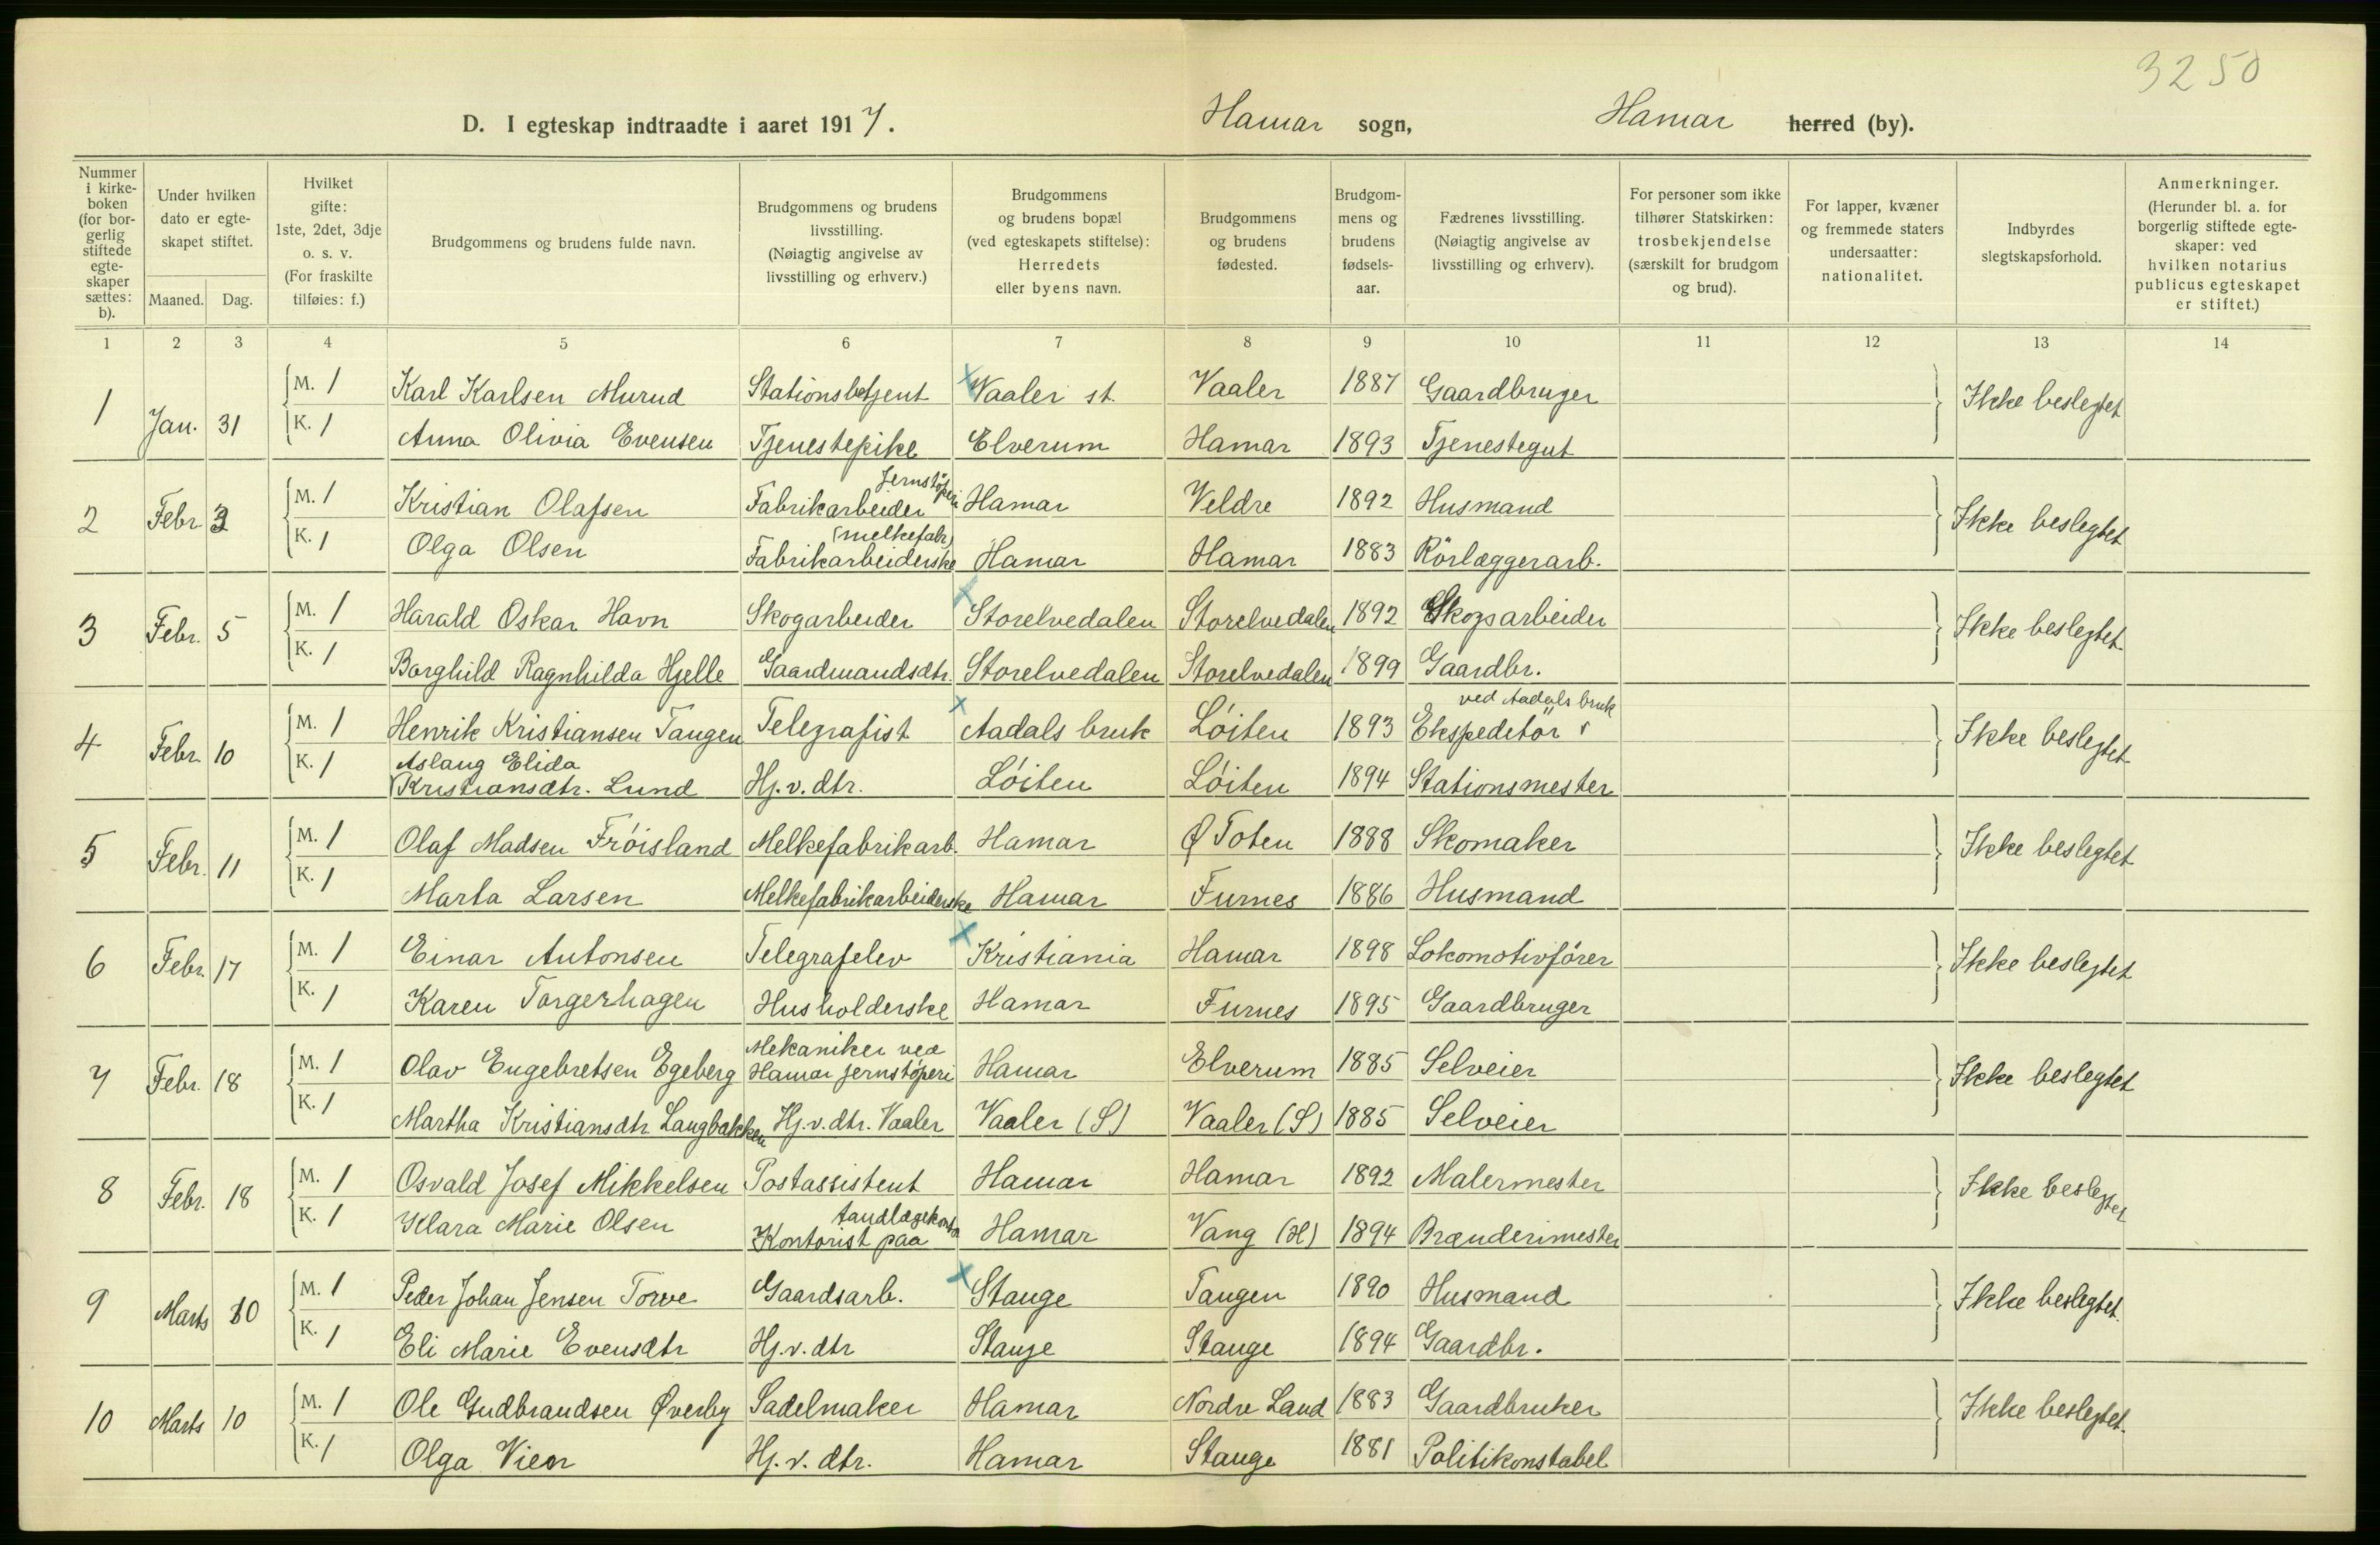 3250
D. I egteskap indtraadte i aaret 1917. Hamar sogn, Hamar herred (by).
Nummer i kirkeboken (for borgerlig stiftede egteskaper sættes: b).
Under hvilken dato er egteskapet stiftet.
Maaned. Dag.
Hvilket gifte: 1ste, 2det, 3dje o. s. v. (For fraskilte tilføies: f.)
Brudgommens og brudens fulde navn.
Brudgommens og brudens livsstilling. (Nøiagtig angivelse av livsstilling og erhverv.)
Brudgommens og brudens bopæl (ved egteskapets stiftelse): Herredets eller byens navn.
Brudgommens og brudens fødested.
Brudgommens og brudens fødselsaar.
Fædrenes livsstilling. (Nøiagtig angivelse av livsstilling og erhverv).
For personer som ikke tilhører Statskirken: trosbekjendelse (særskilt for brudgom og brud).
For lapper, kvæner og fremmede staters undersaatter: nationalitet.
Indbyrdes slegtskapsforhold.
Anmerkninger. (Herunder bl. a. for borgerlig stiftede egteskaper: ved hvilken notarius publicus egteskapet er stiftet.)
1 2 3 4 5 6 7 8 9 10 11 12 13 14
1 Jan. 31 M. 1 Karl Karlsen Murud Stationsbetjent Vaaler st. Vaaler 1887 Gaardbruger Ikke beslegtet
K. 1 Anna Olivia Evensen Tjenestepike Elverum Hamar 1893 Tjenestegut
2 Febr 3 M. 1 Kristian Olafsen Fabrikarbeider Jernstöperi Hamar Veldre 1892 Husmand Ikke beslegtet
K. 1 Olga Olsen Fabrikarbeiderske (melkefabr) Hamar Hamar 1883 Rörlæggerarb.
3 Febr. 5 M. 1 Harald Oskar Havn Skogarbeider Storelvedalen Storelvedalen 1892 Skogsarbeider Ikke beslegtet.
K. 1 Borghild Ragnhilda Hjelle Gaardmandsdtr. Storelvedalen Storelvedalen 1899 Gaardbr.
4 Febr. 10 M. 1 Henrik Kristiansen Tangen Telegrafist Aadals bruk Löiten 1893 Ekspeditör ved Aadals bruk Ikke beslegtet
K. 1 Aslaug Elida Kristiansdtr. Lund Hj. v. dtr. Löiten Löiten 1894 Stationsmester
5 Febr. 11 M. 1 Olaf Madsen Fröisland Melkefabrikarb. Hamar Ø Toten 1888 Skomaker Ikke beslegtet
K. 1 Marta Larsen Melkefabrikarbeiderske Hamar Furnes 1886 Husmand
6 Febr. 17 M. 1 Einar Antonsen Telegrafelev Kristiania Hamar 1898 Lokomotivförer Ikke beslegtet
K. 1 Karen Torgerhagen Husholderske Hamar Furnes 1895 Gaardbruger
7 Febr. 18 M. 1 Olav Engebretsen Egeberg Mekaniker ved Hamar jernstöperi Hamar Elverum 1885 Selveier Ikke beslegtet
K. 1 Martha Kristiansdtr Langbakken Hj. v. dtr. Vaaler Vaaler (S) Vaaler (S) 1885 Selveier
8 Febr. 18 M. 1 Osvald Josef Mikkelsen Postassistent Hamar Hamar 1892 Malermester Ikke beslegtet
K. 1 Klara Marie Olsen Kontorist paa tandlægekontor Hamar Vang (H) 1894 Brænderimester
9 Marts 10 M. 1 Peder Johan Jensen Torve Gaardsarb. Stange Tangen 1890 Husmand Ikke beslegtet.
K. 1 Eli Marie Evensdtr Hj. v. dtr Stange Stange 1894 Gaardbr.
10 Marts 10 M. 1 Ole Gudbrandsen Øverby Sadelmaker Hamar Nordre Land 1883 Gaardbruker Ikke beslegtet.
K. 1 Olga Vien Hj. v. dtr. Hamar Stange 1881 Politikonstabel